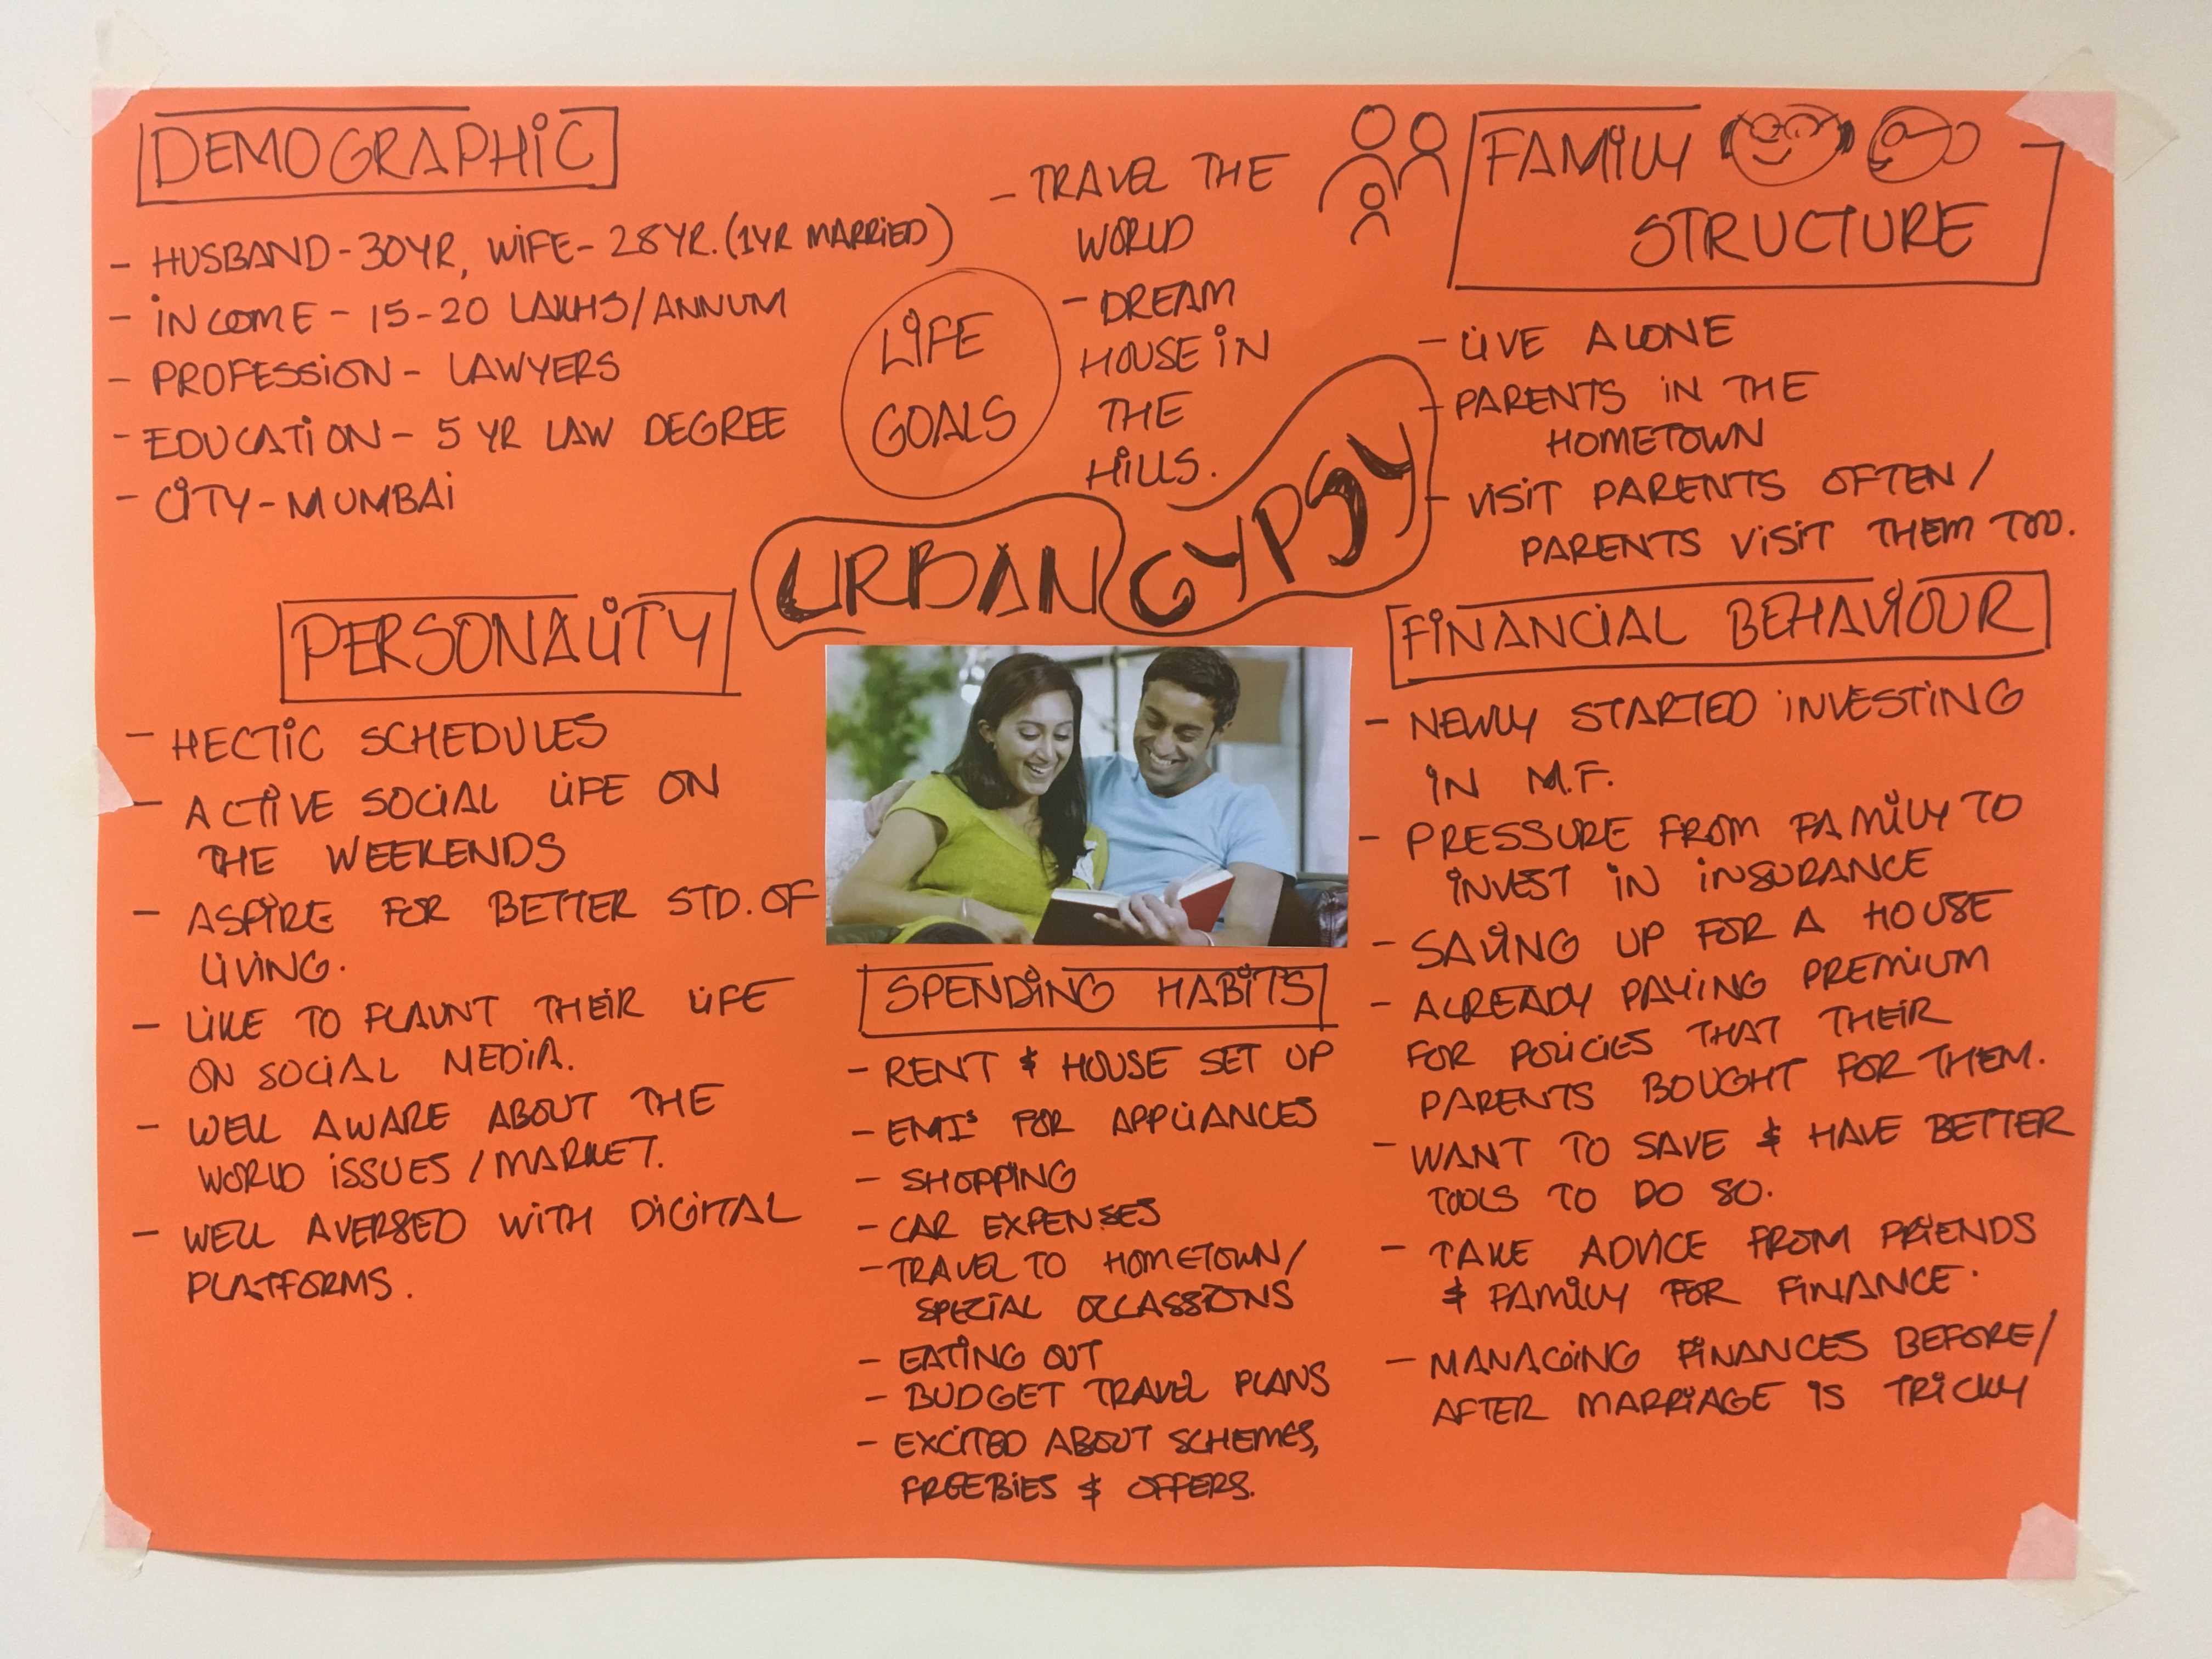 DEMOGRAPHIC
- HUSBAND - 30YR, WIFE - 28YR. (1YR MARRIED)
- INCOME - 15-20 LAKHS/ANNUM
- PROFESSION - LAWYERS
- EDUCATION - 5 YR LAW DEGREE
- CITY - MUMBAI
LIFE
GOALS
- TRAVEL THE
WORLD
- DREAM
HOUSE IN
THE
HILLS.
FAMILY
STRUCTURE
- LIVE ALONE
- PARENTS IN THE
HOMETOWN
- VISIT PARENTS OFTEN /
PARENTS VISIT THEM TOO.
URBAN GYPSY
PERSONALITY
- HECTIC SCHEDULES
- ACTIVE SOCIAL LIFE ON
THE WEEKENDS
- ASPIRE FOR BETTER STD. OF
LIVING.
- LIKE TO FLAUNT THEIR LIFE
ON SOCIAL MEDIA.
- WELL AWARE ABOUT THE
WORLD ISSUES / MARKET.
- WELL AVERSED WITH DIGITAL
PLATFORMS.
SPENDING HABITS
- RENT & HOUSE SET UP
- EMI's FOR APPLIANCES
- SHOPPING
- CAR EXPENSES
- TRAVEL TO HOMETOWN /
SPECIAL OCCASSIONS
- EATING OUT
- BUDGET TRAVEL PLANS
- EXCITED ABOUT SCHEMES,
FREEBIES & OFFERS.
FINANCIAL BEHAVIOUR
- NEWLY STARTED INVESTING
IN M.F.
- PRESSURE FROM FAMILY TO
INVEST IN INSURANCE
- SAVING UP FOR A HOUSE
- ALREADY PAYING PREMIUM
FOR POLICIES THAT THEIR
PARENTS BOUGHT FOR THEM.
- WANT TO SAVE & HAVE BETTER
TOOLS TO DO SO.
- TAKE ADVICE FROM FRIENDS
& FAMILY FOR FINANCE.
- MANAGING FINANCES BEFORE /
AFTER MARRIAGE IS TRICKY